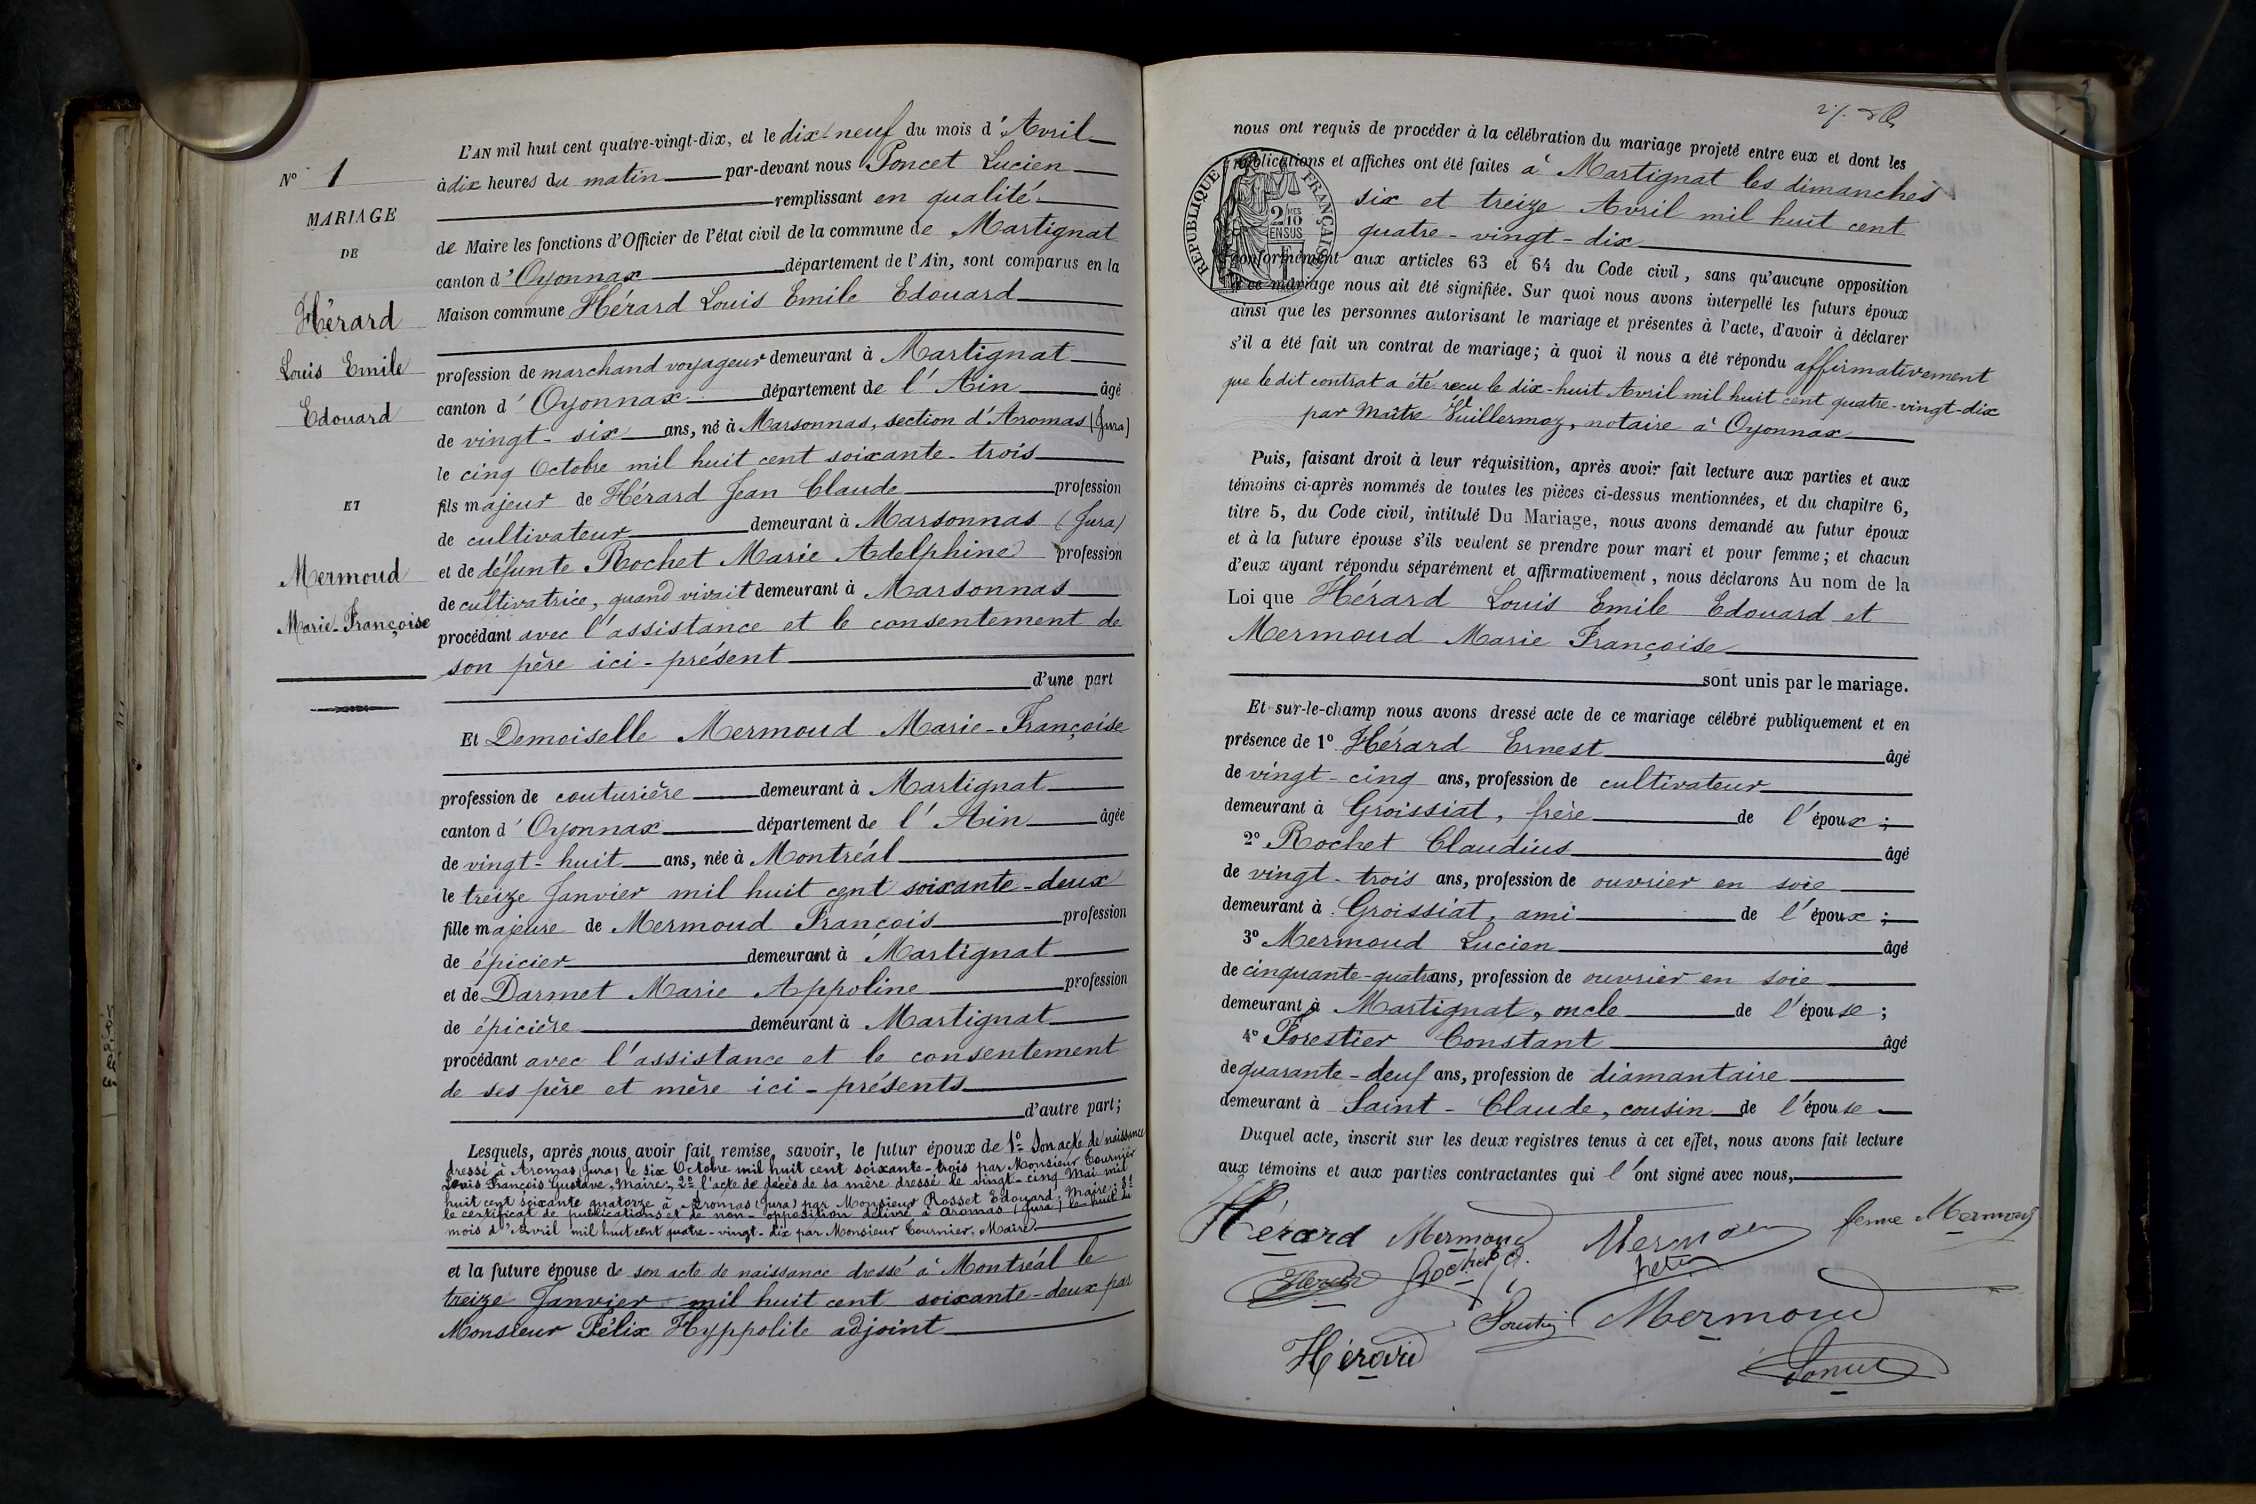 N° 1
MARIAGE
DE
Hérard
Louis Emile
Edouard
ET
Mermoud
Marie-Françoise
L'AN mil huit cent quatre-vingt-dix, et le dix-neuf du mois d'Avril
à dix heures du matin par-devant nous Poncet Lucien
remplissant en qualité
de Maire les fonctions d'Officier de l'état civil de la commune de Martignat
canton d'Oyonnax département de l'Ain, sont comparus en la
Maison commune Hérard Louis Emile Edouard
profession de marchand voyageur demeurant à Martignat
canton d'Oyonnax département de l'Ain âgé
de vingt-six ans, né à Marsonnas, section d'Aromas (Jura)
le cinq Octobre mil huit cent soixante-trois
fils majeur de Hérard Jean Claude profession
de cultivateur demeurant à Marsonnas (Jura)
et de défunte Rochet Marie Adelphine profession
de cultivatrice, quand vivait demeurant à Marsonnas
procédant avec l'assistance et le consentement de
son père ici-présent
d'une part
Et Demoiselle Mermoud Marie-Françoise
profession de couturière demeurant à Martignat
canton d'Oyonnax département de l'Ain âgée
de vingt-huit ans, née à Montréal
le treize Janvier mil huit cent soixante-deux
fille majeure de Mermoud François profession
de épicier demeurant à Martignat
et de Darmet Marie Appoline profession
de épicière demeurant à Martignat
procédant avec l'assistance et le consentement
de ses père et mère ici-présents
d'autre part;
Lesquels, après nous avoir fait remise, savoir, le futur époux de 1° Son acte de naissance
dressé à Aromas (Jura) le six Octobre mil huit cent soixante-trois par Monsieur Tournier
Louis François Gustave, Maire; 2° l'acte de décès de sa mère dressé le vingt-cinq Mai mil
huit cent soixante quatorze à Aromas (Jura) par Monsieur Rosset Edouard, Maire; 3°
le certificat de publications et de non-opposition délivré à Aromas (Jura) le huit du
mois d'Avril mil huit cent quatre-vingt-dix par Monsieur Tournier, Maire
et la future épouse de son acte de naissance dressé à Montréal le
treize Janvier mil huit cent soixante-deux par
Monsieur Félix Hyppolite adjoint
nous ont requis de procéder à la célébration du mariage projeté entre eux et dont les
publications et affiches ont été faites à Martignat les dimanches
six et treize Avril mil huit cent
quatre-vingt-dix
RÉPUBLIQUE FRANÇAISE
2/10 MES
EN SUS
conformément aux articles 63 et 64 du Code civil, sans qu'aucune opposition
à ce mariage nous ait été signifiée. Sur quoi nous avons interpellé les futurs époux
ainsi que les personnes autorisant le mariage et présentes à l'acte, d'avoir à déclarer
s'il a été fait un contrat de mariage; à quoi il nous a été répondu affirmativement
que le dit contrat a été reçu le dix-huit Avril mil huit cent quatre-vingt-dix
par Maître Vuillermoz, notaire à Oyonnax
Puis, faisant droit à leur réquisition, après avoir fait lecture aux parties et aux
témoins ci-après nommés de toutes les pièces ci-dessus mentionnées, et du chapitre 6,
titre 5, du Code civil, intitulé Du Mariage, nous avons demandé au futur époux
et à la future épouse s'ils veulent se prendre pour mari et pour femme; et chacun
d'eux ayant répondu séparément et affirmativement, nous déclarons Au nom de la
Loi que Hérard Louis Emile Edouard et
Mermoud Marie Françoise
sont unis par le mariage.
Et sur-le-champ nous avons dressé acte de ce mariage célébré publiquement et en
présence de 1° Hérard Ernest âgé
de vingt-cinq ans, profession de cultivateur
demeurant à Groissiat, frère de l'époux;
2° Rochet Claudius âgé
de vingt-trois ans, profession de ouvrier en soie
demeurant à Groissiat, ami de l'époux;
3° Mermoud Lucien âgé
de cinquante-quatre ans, profession de ouvrier en soie
demeurant à Martignat, oncle de l'épouse;
4° Forestier Constant âgé
de quarante-deux ans, profession de diamantaire
demeurant à Saint-Claude, cousin de l'épouse
Duquel acte, inscrit sur les deux registres tenus à cet effet, nous avons fait lecture
aux témoins et aux parties contractantes qui l'ont signé avec nous,
Hérard Mermoud Mermoud femme Mermoud
Rochet Cl.
Mermoud
Hérard
Poncet